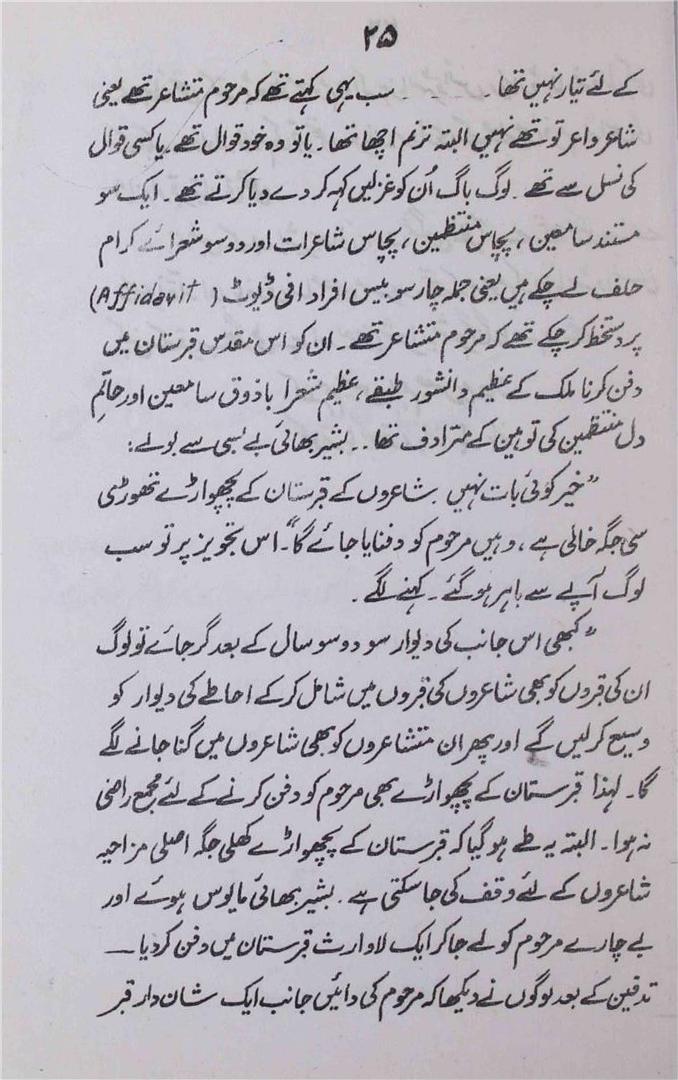 ۲۵
کے لئے تیار نہیں تھا ۔ ۔ ۔ ۔ ۔ ۔ سب یہی کہتے تھے کہ مرحوم متشاعر تھے یعنی
شاعر واعر تو تھے نہیں البتہ ترنم اچھا تھا ۔ یا تو وہ خود قوال تھے ۔ یا کسی قوال
کی نسل سے تھے ۔ لوگ باگ اُن کو غزلیں کہہ کر دے دیا کرتے تھے ۔ ایک سو
مستند سامعین ، پچاس منتظمین ، پچاس شاعرات اور دو سو شعرائے کرام
حلف لے چکے ہیں یعنی جملہ چار سو بیس افراد افی ڈیوٹ (Affidavit)
پر دستخط کر چکے تھے کہ مرحوم متشاعر تھے ۔ ان کو اس مقدس قبرستان میں
دفن کرنا ملک کے عظیم دانشور طبقے ، عظیم شعرا باذوق سامعین اور حاتمِ
دل منتظمین کی توہین کے مترادف تھا ۔ ۔ بشیر بھائی بے بسی سے بولے :
”خیر کوئی بات نہیں ۔ شاعروں کے قبرستان کے پچھواڑے تھوڑی
سی جگہ خالی ہے ، وہیں مرحوم کو دفنایا جائے گا“۔ اس تجویز پر تو سب
لوگ آپے سے باہر ہو گئے ۔ کہنے لگے ۔
”کبھی اس جانب کی دیوار سو دو سو سال کے بعد گر جائے تو لوگ
ان کی قبروں کو بھی شاعروں کی قبروں میں شامل کر کے احاطے کی دیوار کو
وسیع کر لیں گے اور پھر ان متشاعروں کو بھی شاعروں میں گنا جانے لگے
گا ۔ لہذا قبرستان کے پچھواڑے بھی مرحوم کو دفن کرنے کے لئے مجمع راضی
نہ ہوا ۔ البتہ یہ طے ہو گیا کہ قبرستان کے پچھواڑے کھلی جگہ اصلی مزاحیہ
شاعروں کے لئے وقف کی جا سکتی ہے ۔ بشیر بھائی مایوس ہوئے اور
بے چارے مرحوم کو لے جا کر ایک لاوارث قبرستان میں دفن کر دیا —
تدفین کے بعد لوگوں نے دیکھا کہ مرحوم کی دائیں جانب ایک شان دار قبر